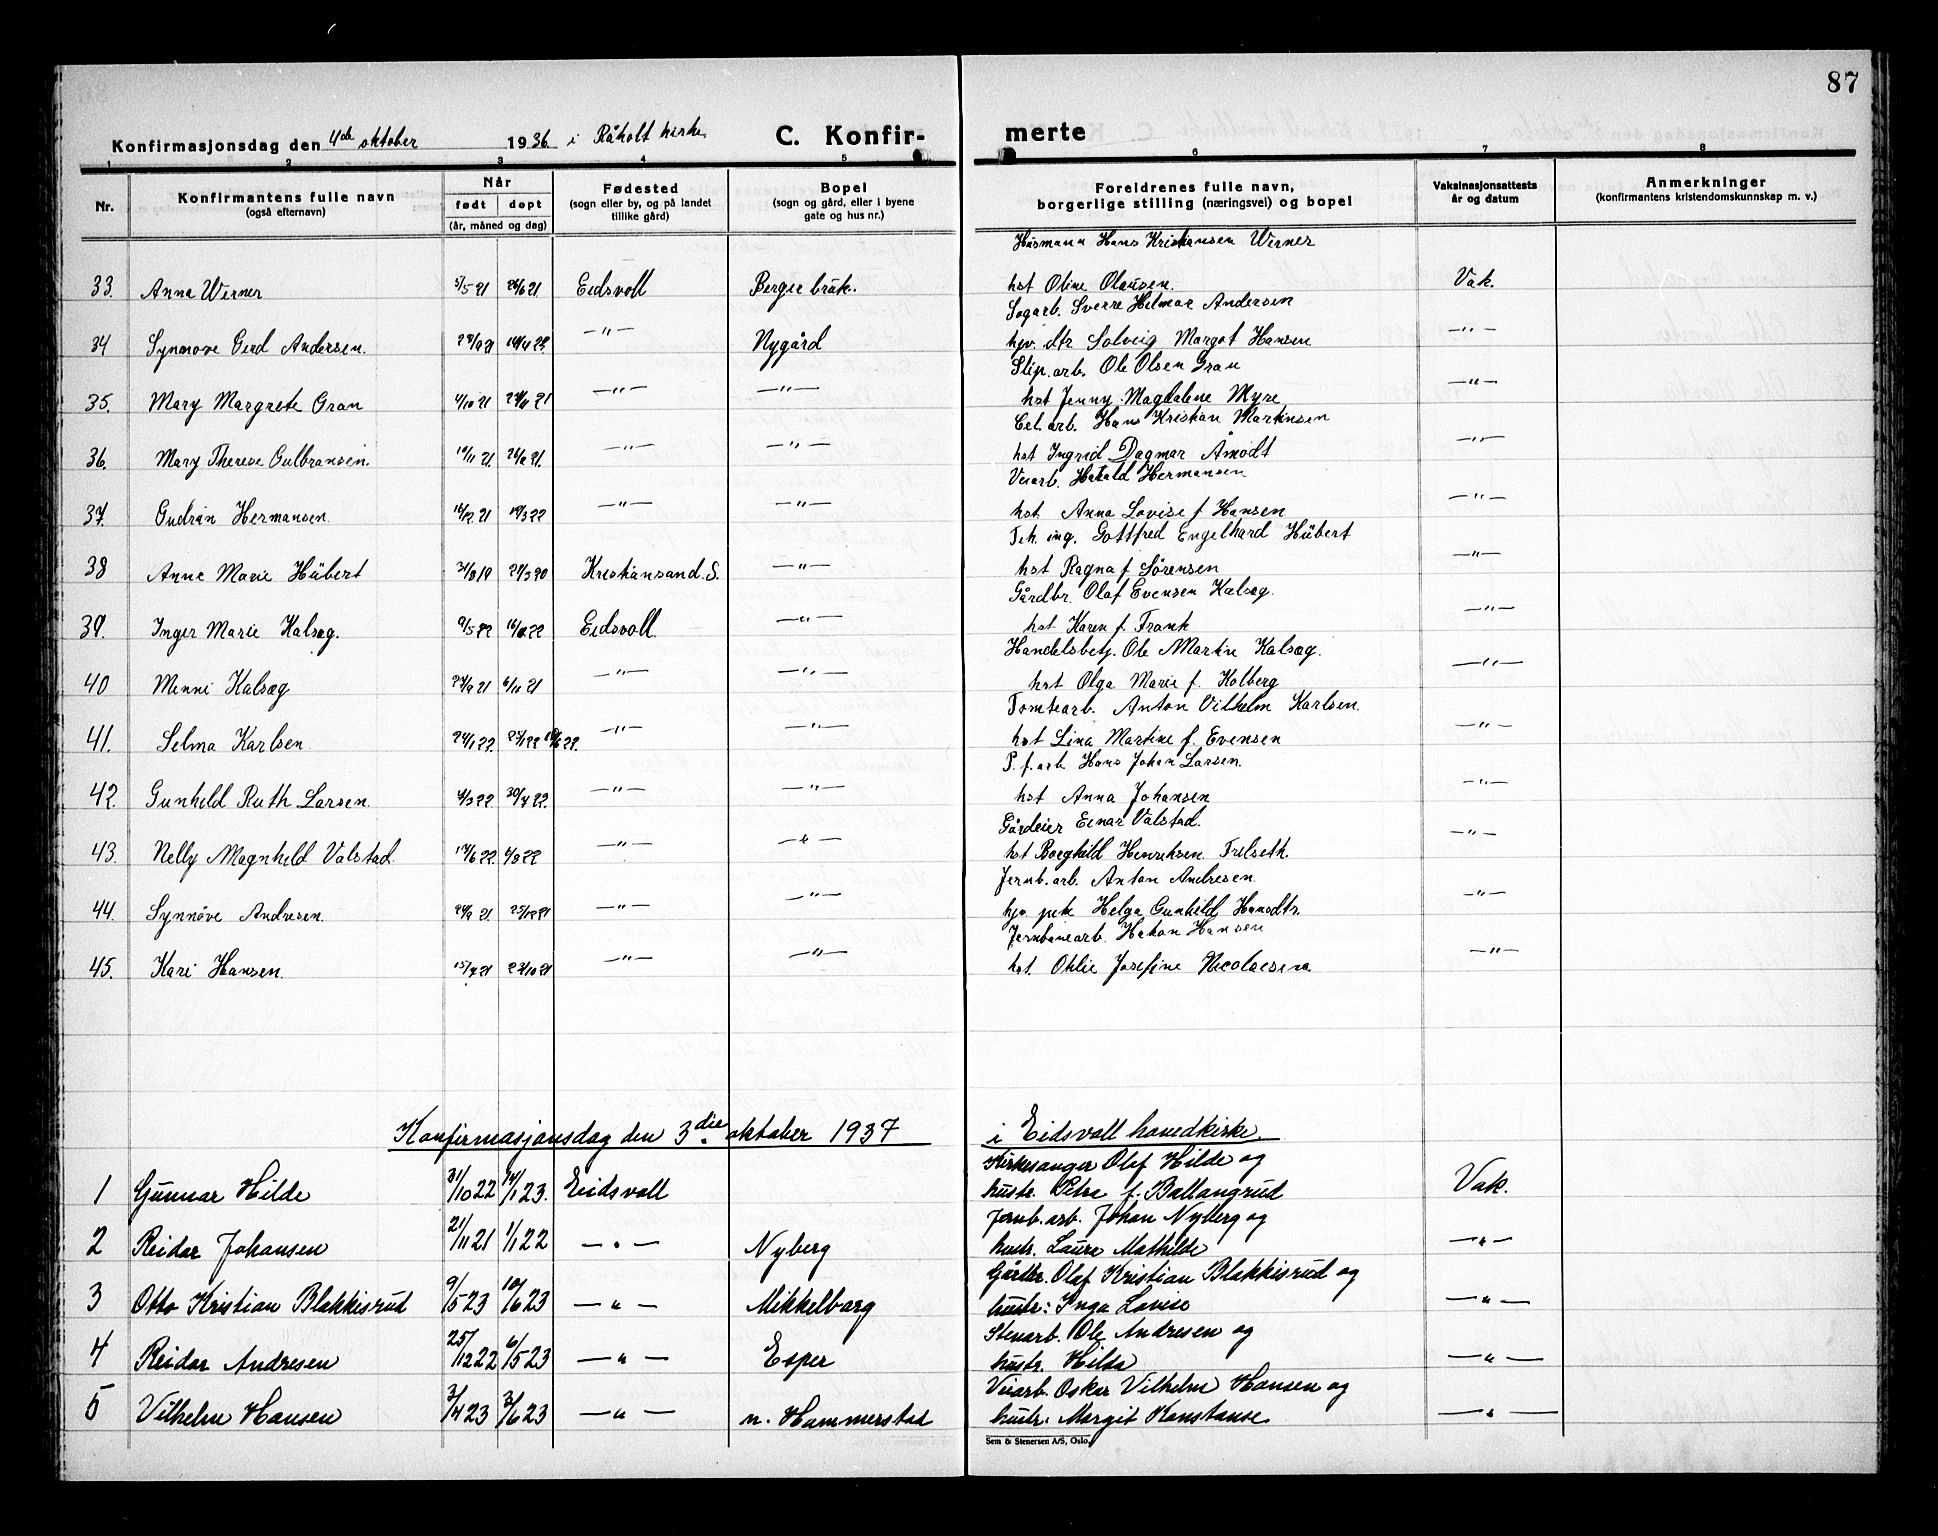 87
Konfirmasjonsdag den 4de oktober 1936 i Råholt kirke C. Konfir- merte
1 2 3 4 5 6 7 8
Nr. Konfirmantens fulle navn (også efternavn) Når født døpt (år, måned og dag) Fødested (sogn eller by, og på landet tillike gård) Bopel (sogn og gård, eller i byene gate og hus nr.) Foreldrenes fulle navn, borgerlige stilling (næringsvei) og bopel Vaksinasjonsattests år og datum Anmerkninger (konfirmantens kristendomskunnskap m. v.)
Husmann Hans Kristiansen Werner
33. Anna Werner 5/5 21 26/6 21 Eidsvoll Berger bruk. hst Oline Olausen. Vak.
Sagarb. Sverre Helmar Andersen
34 Synnøve Gerd Andersen. —"— Nygård hjv. dtr Solveig Margot Hansen —"—
Slip. arb. Ole Olsen Gran
35. Mary Margrete Gran 4/10 21 27/11 21 —"— —"— hst Jenny Magdalene Myre —"—
Cel. arb. Hans Kristian Martinsen
36. Mary Therese Gulbransen. —"— —"— hst Ingrid Dagmar Åmodt —"—
Veiarb. Harald Hermansen
37. Gudrun Hermansen 16/12 21 19/3 22 —"— —"— hst. Anna Lovise f Hansen —"—
Teh. ing. Gottfred Engelhard Hübert
38 Anne Marie Hübert 31/8 19 21/3 20 Kristiansand. S. —"— hst Ragna f Sörensen —"—
Gårdbr. Olaf Evensen Kalsæg.
39. Inger Marie Kalsæg. 9/5 22 Eidsvoll. —"— hst Karen f. Frank —"—
Handelsbetj. Ole Martin Kalsæg.
40 Minni Kalsæg 27/9 21 6/11 21 —"— —"— hst Olga Marie f. Kolberg —"—
Tomtearb. Anton Vilhelm Karlsen.
41. Selma Karlsen 24/1 22. —"— —"— hst Lina Martine f. Evensen —"—
P. f. arb. Hans Johan Larsen.
42. Gunhild Ruth Larsen. 4/3 22 30/4 22. —"— —"— hst Anna Johansen —"—
Gårdeier Einar Valstad.
43. Nelly Magnhild Valstad. 17/6 22. 6/8 22 —"— —"— hst Borghild Henriksen Trelseth. —"—
Jernb. arb. Anton Andresen.
44. Synnöve Andresen. 24/9 21 25/12 21 —"— —"— hjv pike Helga Gunhild Hansdtr. —"—
Jernbanearb. Hakon Hansen
45. Kari Hansen. 15/7 21 23/10 21 —"— —"— hst. Othlie Josefine Nicolaesen —"—
Konfirmasjonsdag den 3die oktober 1937 i Eidsvoll hovedkirke.
Kirkesanger Olaf Hilde og
1 Gunnar Hilde 31/10 22 14/1 23. Eidsvoll hustr. Petra f. Ballangrud Vak.
Jernb. arb. Johan Nyberg og
2 Reidar Johansen 21/11 21 1/1 22 —"— Nyberg hustr. Laura Mathilde —"—
Gårdbr. Olaf Kristian Blakkisrud og
3 Otto Kristian Blakkisrud 9/5 23 10/6 23 —"— Mikkelborg hustr: Inga Lovise —"—
Stenarb. Ole Andresen og
4 Reidar Andresen 25/12 22 6/5 23 —"— Esper hustr. Hilda —"—
Veiarb. Oskar Vilhelm Hansen og
5 Vilhelm Hansen 3/4 23 3/6 23 —"— n. Hammerstad hustr: Margit Konstanse —"—
Sem & Stenersen A/S, Oslo.